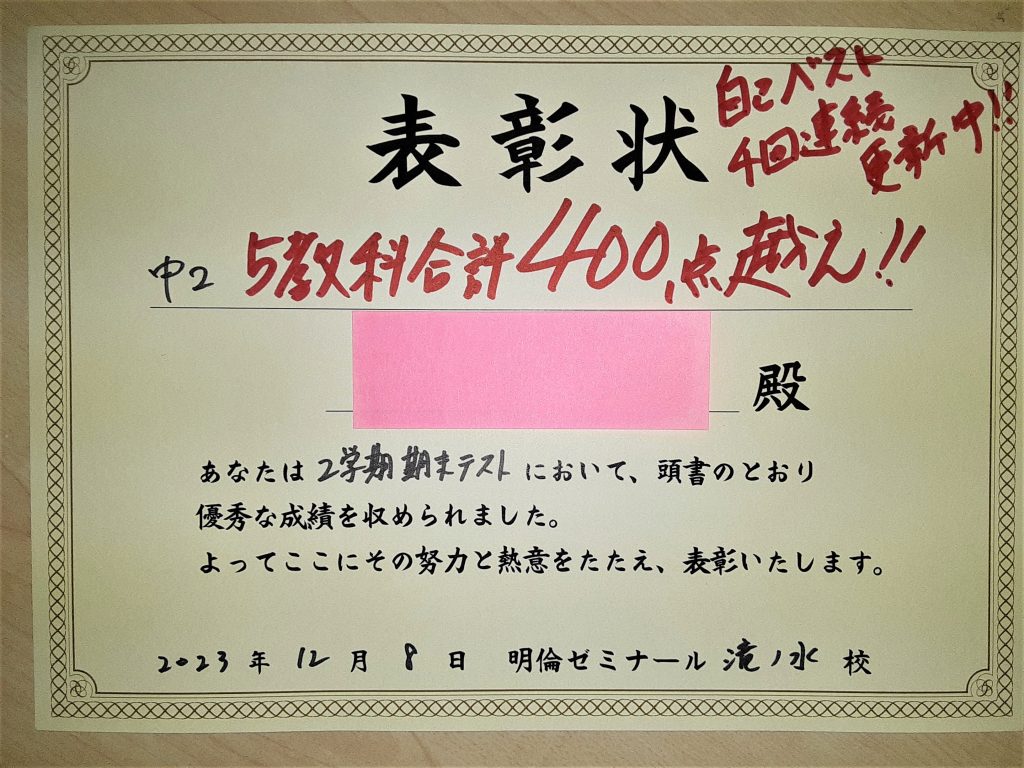 表彰状
自己ベスト
4回連続
更新中!!
中2 5教科合計400点越え!!
殿
あなたは2学期期末テストにおいて、頭書のとおり
優秀な成績を収められました。
よってここにその努力と熱意をたたえ、表彰いたします。
2023年12月8日 明倫ゼミナール滝ノ水校